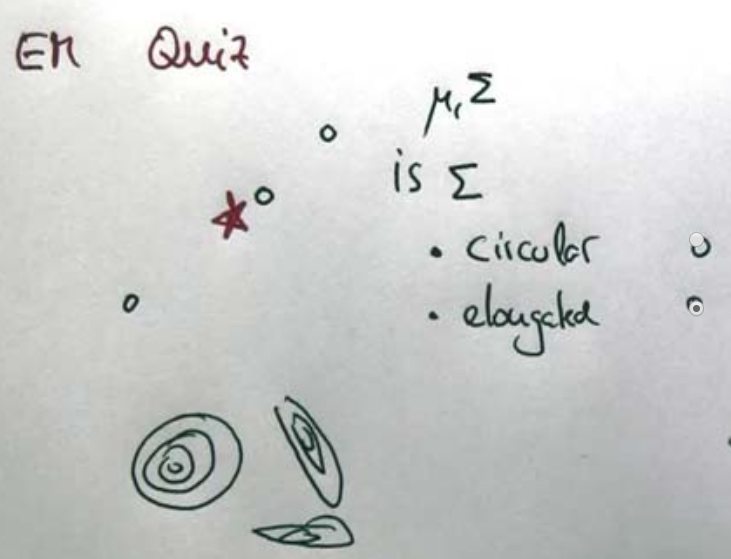 EM Quiz
μ, Σ
is Σ
• circular
• elongated